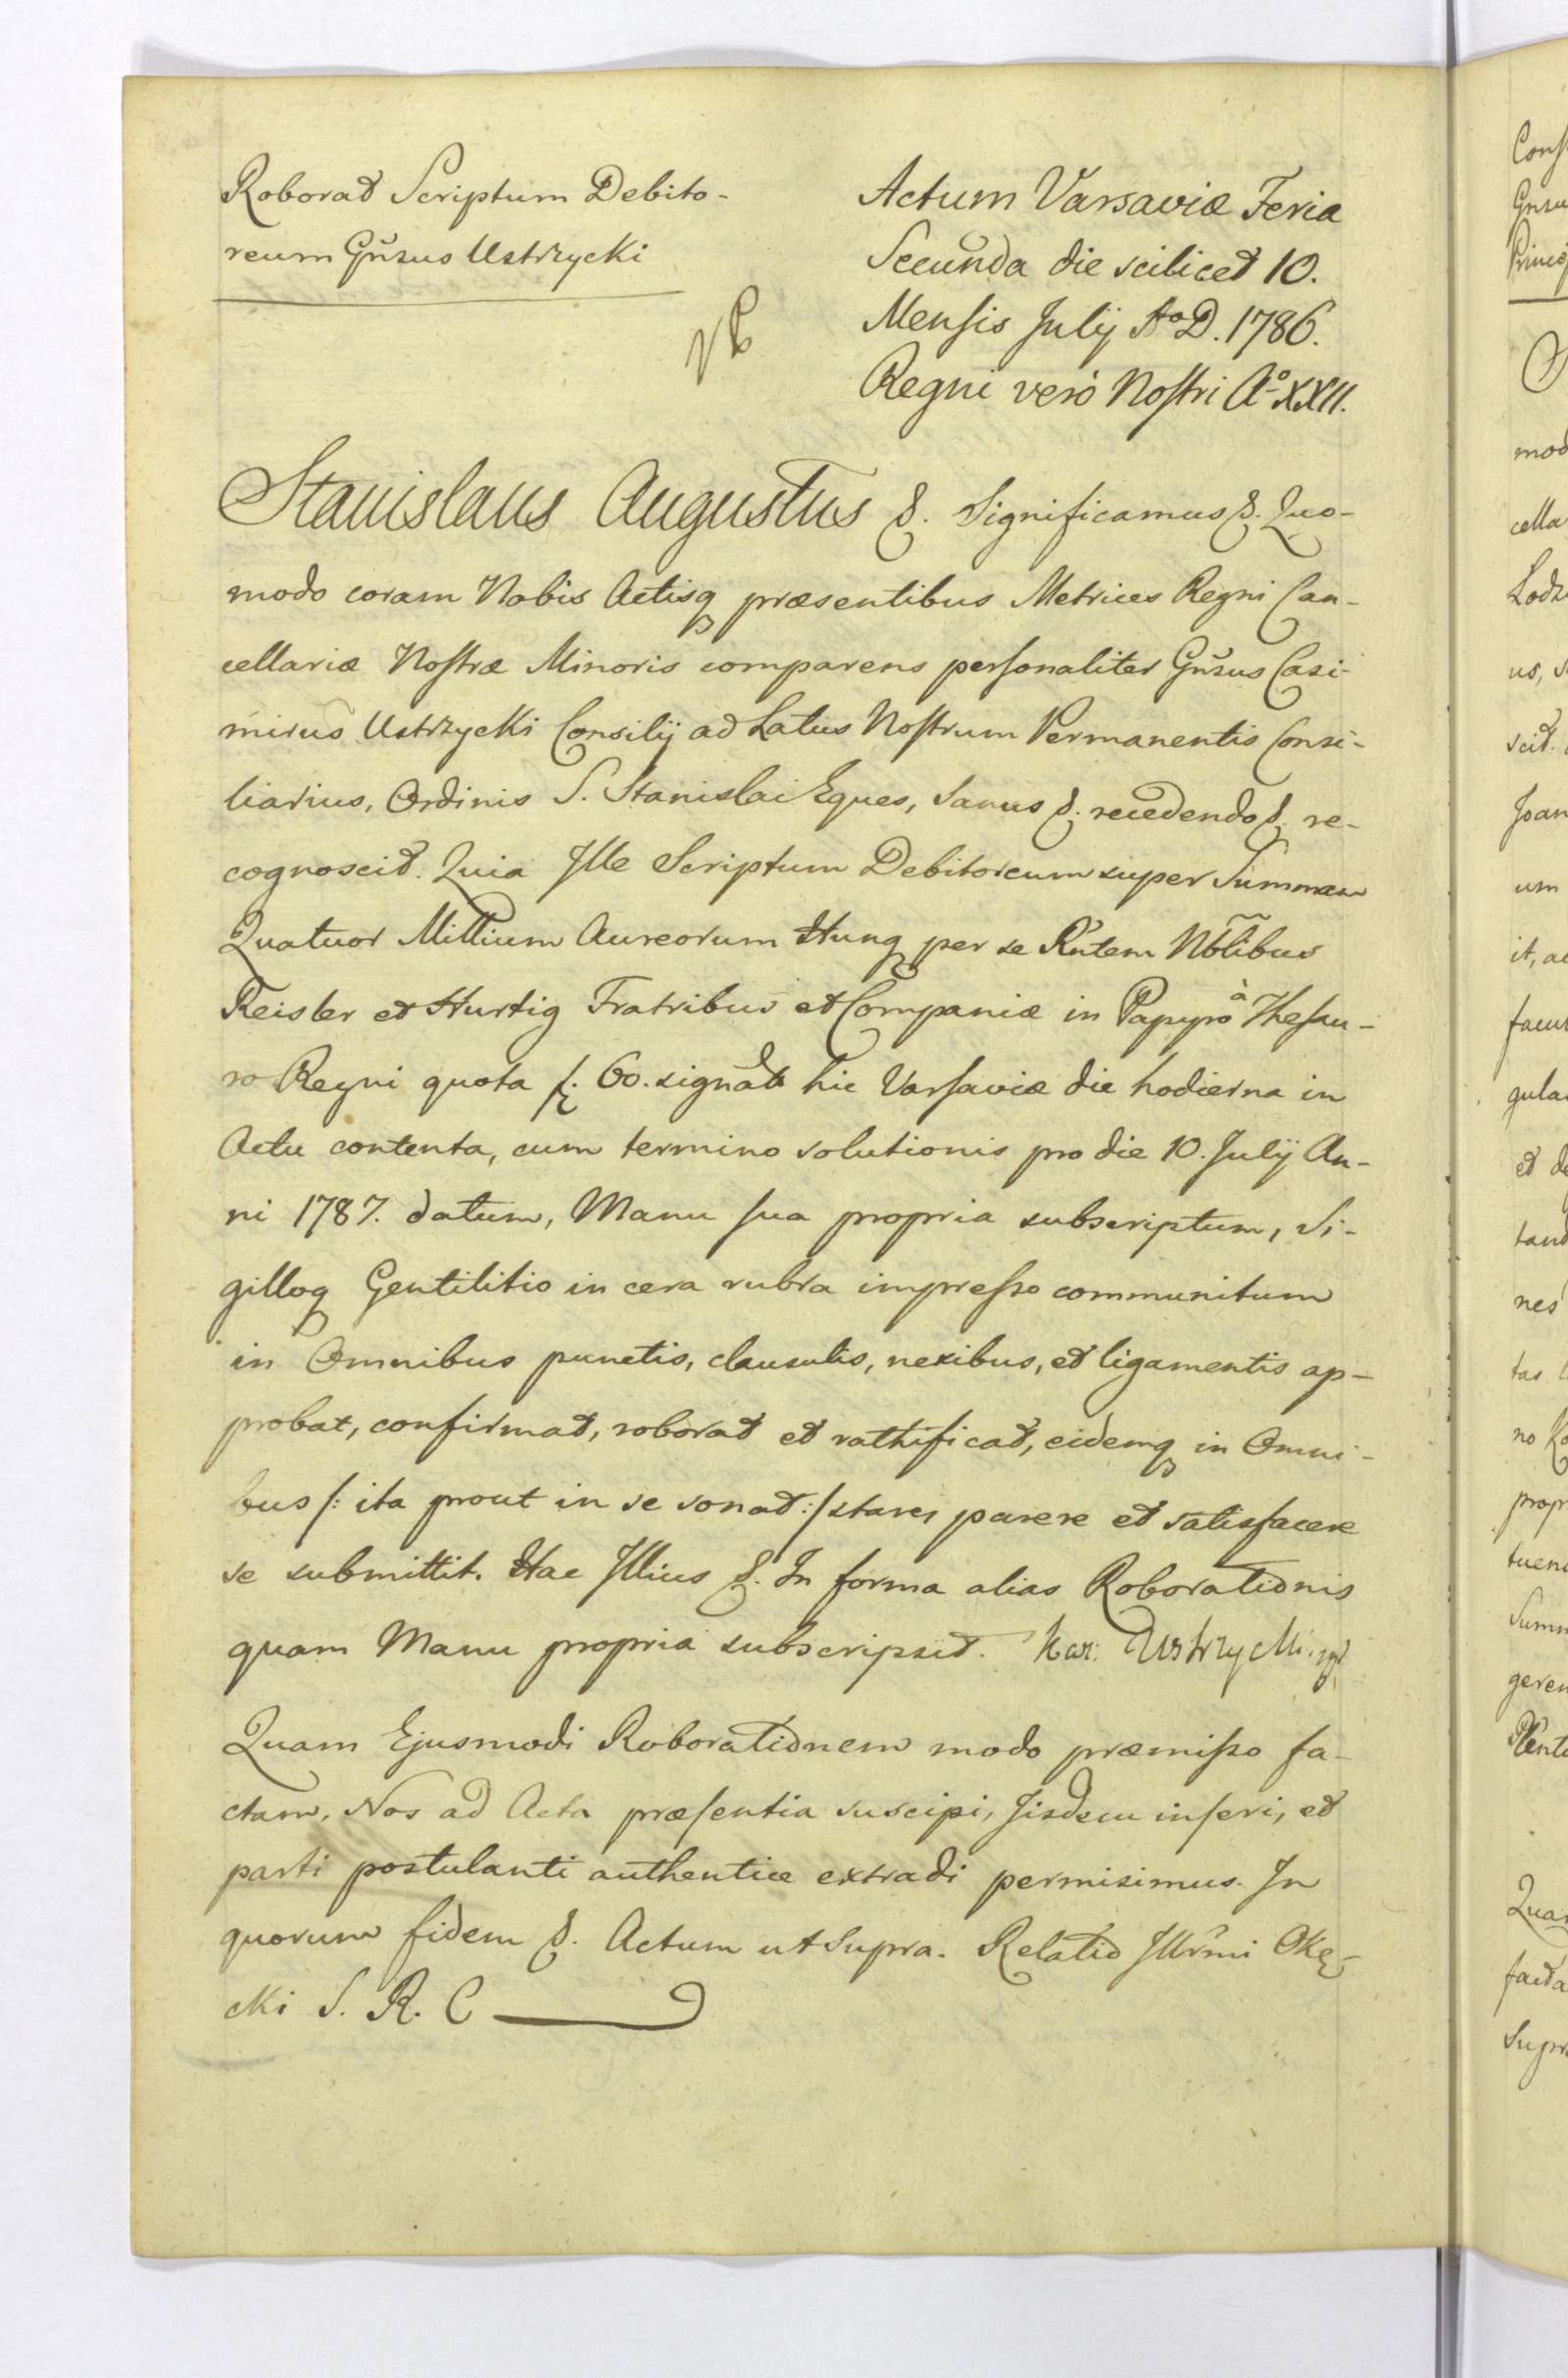 Roborat Scriptum Debito-
reum Gñsus Ustrzycki
Actum Varsaviæ Feria
Secunda die scilicet 10.
Mensis Julij Aº D. 1786.
Regni verò Nostri Aº XXII.
Stanislaus Augustus &. Significamus &. Quo-
modo coram Nobis Actisq præsentibus Metrices Regni Can-
cellariæ Nostræ Minoris comparens personaliter Gñsus Casi-
mirus Ustrzycki Consilij ad Latus Nostrum Permanentis Consi-
liarius, Ordinis S. Stanislai Eques, sanus &. recedendo &. re-
cognoscit. Quia Ille Scriptum Debitoreum super Summam
Quatuor Millium Aureorum Hung per se Rñtem Nõblibus
Reisler et Hurtig Fratribus et Companiæ in Papyro à Thesau-
ro Regni quota f. 60. signata hic Varsaviæ die hodierna in
Actu contenta, cum termino solutionis pro die 10. Julij An-
ni 1787. datum, Manu sua propria subscriptum, Si-
gilloq Gentilitio in cera rubra impresso communitum
in Omnibus punctis, clausulis, nexibus, et ligamentis ap-
probat, confirmat, roborat et rathificat, eidemq in Omni-
bus /: ita prout in se sonat :/ stare, parere et satisfacere
se submittit. Hac Illius &. In forma alias Roborationis
quam Manu propria subscripsit. Kaz: Ustrzycki mp
Quam Ejusmodi Roborationem modo præmisso fa-
ctam, Nos ad Acta præsentia suscipi, Jisdem inseri, et
parti postulanti authentice extradi permisimus. In
quorum fidem &. Actum ut Supra. Relatio Jllrmi Okę-
cki S. R. C
Conf
Gñsu
Princ
mod
cella
Lodz
us, s
scit.
Joan
um
it, a
facul
gula
et d
tand
nes
tas
no
propr
tuen
Sum
geren
Quam
Supra